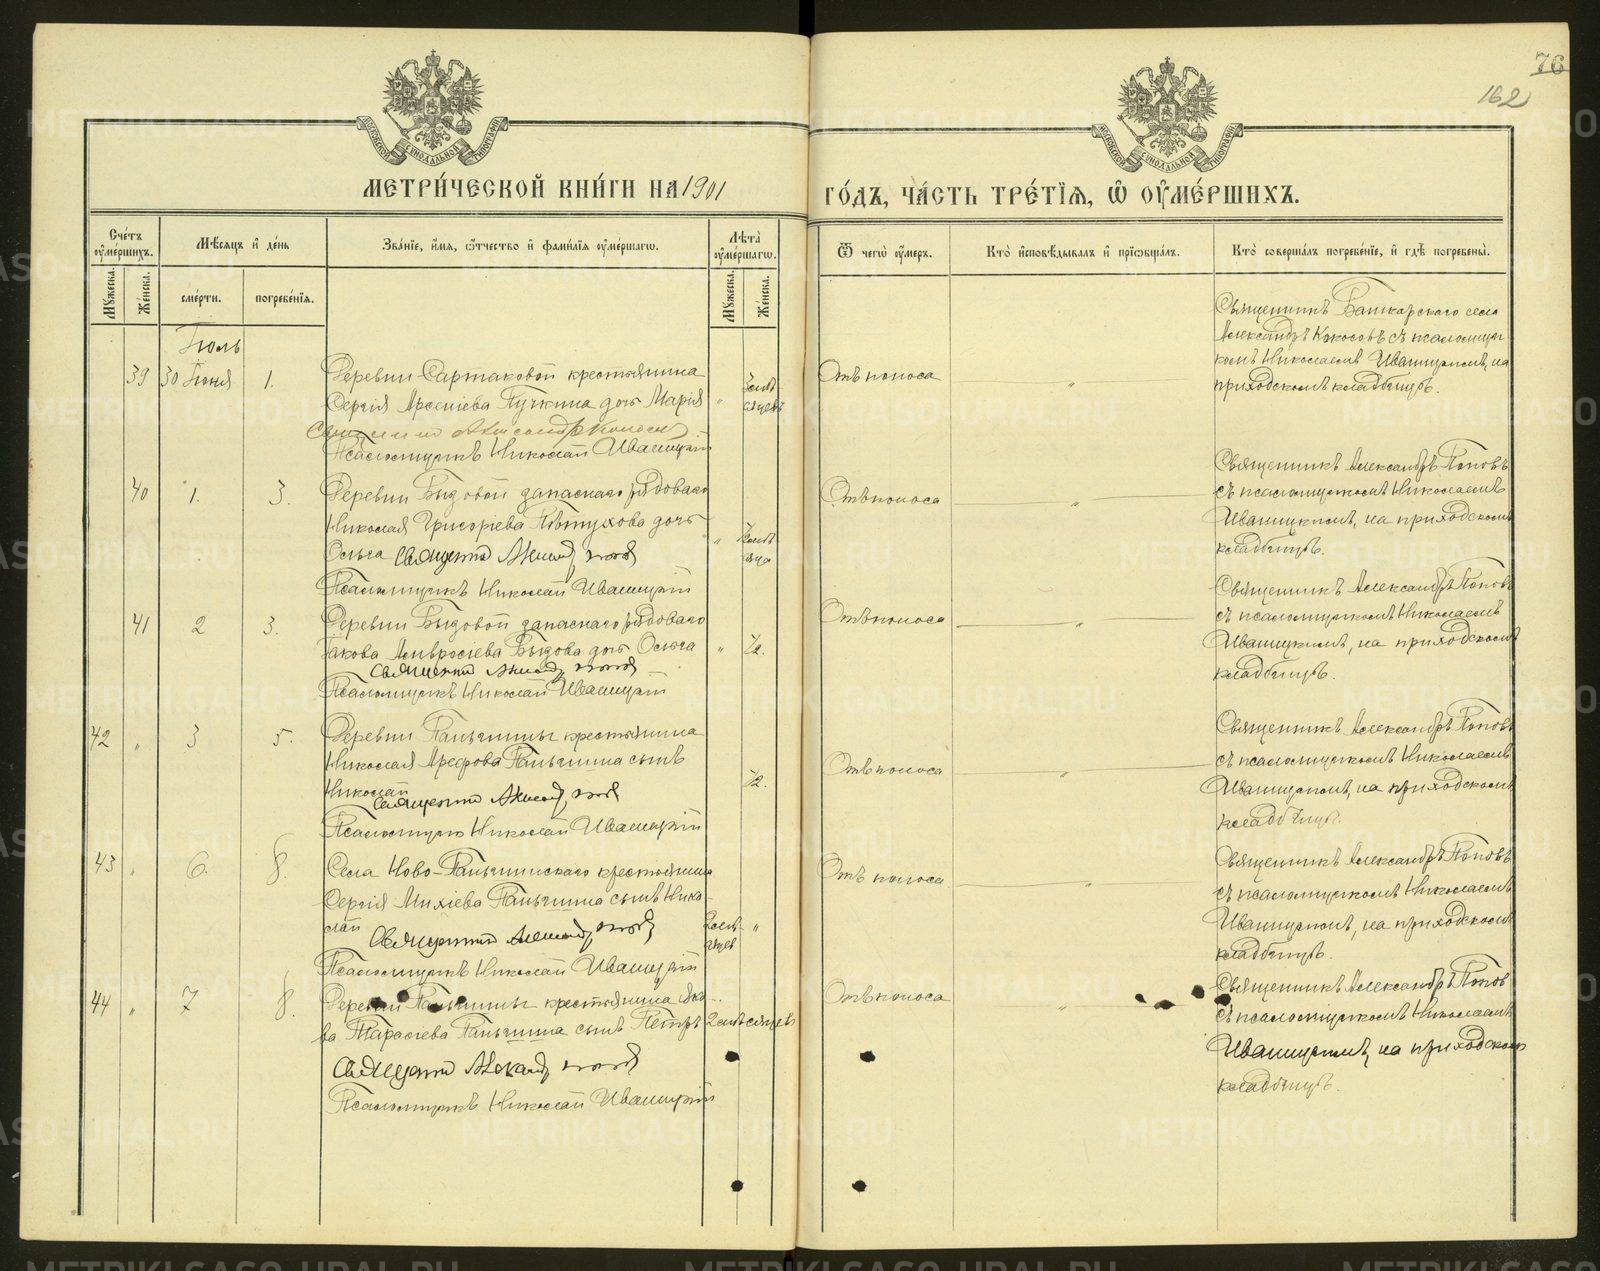 76
162
МОСКОВСКОЙ СѴНОДАЛЬНОЙ ТИПОГРАФІИ
МОСКОВСКОЙ СѴНОДАЛЬНОЙ ТИПОГРАФІИ
МЕТРИ́ЧЕСКОЙ КНИ́ГИ НА 1901 ГО́ДЪ, ЧА́СТЬ ТРЕ́ТЇѦ, Ѽ ОУ҆МЕ́РШИХЪ.
Сче́тъ оу҆ме́ршихъ.
Мꙋжеска.
Же́нска.
Мѣ́сѧцъ и҆ де́нь
сме́рти.
погребе́нїѧ.
Зва́нїе, и҆́мѧ, ѻ҆́тчество и҆ фами́лїѧ оу҆ме́ршагѡ.
Лѣта̀ оу҆ме́ршагѡ.
Мꙋжеска.
Же́нска.
Ѿ чегѡ̀ оу҆́меръ.
Кто̀ и҆сповѣ́дывалъ и҆ прїѡбща́лъ.
Кто̀ соверша́лъ погребе́нїе, и҆ гдѣ̀ погребены̀.
Іюль
39 30 Іюня 1.
Деревни Сартаковой крестьянина
Сергія Арсеніева Пучкина дочь Марія
Псаломщикъ Николай Иваницкій
Отъ поноса
Священникъ Башкарскаго села
Александръ Кокосовъ съ псаломщи-
комъ Николаемъ Иваницкимъ, на
приходскомъ кладбищѣ.
40 1. 3.
Деревни Быдовой запаснаго рядоваго
Николая Григоріева Пѣтухова дочь
Ольга Священникъ Александръ Поповъ
Псаломщикъ Николай Иваницкій
Отъ поноса
Священникъ Александръ Поповъ
съ псаломщикомъ Николаемъ
Иваницкимъ, на приходскомъ
кладбищѣ.
41 2 3.
Деревни Быдовой запаснаго рядоваго
Іакова Амвросіева Быдова дочь Ольга
Священникъ Александръ Поповъ
Псаломщикъ Николай Иваницкій
" ½.
Отъ поноса
Священникъ Александръ Поповъ
съ псаломщикомъ Николаемъ
Иваницкимъ, на приходскомъ
кладбищѣ.
42 " 3 5.
Деревни Паньшины крестьянина
Николая Арефова Паньшина сынъ
Николай
Священникъ Александръ Поповъ
Псаломщикъ Николай Иваницкій
½.
Отъ поноса
Священникъ Александръ Поповъ
съ псаломщикомъ Николаемъ
Иваницкимъ, на приходскомъ
кладбищѣ.
43 " 6. 8.
Села Ново-Паньшинскаго крестьянина
Сергія Михіева Паньшина сынъ Нико-
лай Священникъ Александръ Поповъ
Псаломщикъ Николай Иваницкій
Отъ поноса
Священникъ Александръ Поповъ
съ псаломщикомъ Николаемъ
Иваницкимъ, на приходскомъ
кладбищѣ.
44 " 7 8.
Деревни Паньшины крестьянина Яко-
ва Тарасіева Паньшина сынъ Петръ 2 мѣсяцевъ
Священникъ Александръ Поповъ
Псаломщикъ Николай Иваницкій
Отъ поноса
Священникъ Александръ Поповъ
съ псаломщикомъ Николаемъ
Иваницкимъ, на приходскомъ
кладбищѣ.
METRIKI.GASO-URAL.RU